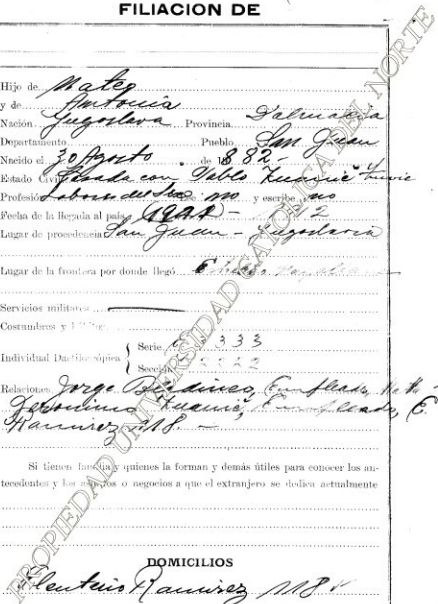 FILIACION DE
Hijo de Mateo
y de Antonia
Nación Yugoslava Provincia Dalmacija
Departamento Pueblo San Juan
Nacido el 30 Agosto de 1882-
Estado Civil Casada con Pablo
Profesión Labores del Sexo no y escribe no
Fecha de la llegada al país
Lugar de procedencia San Juan - Yugoslavia
Lugar de la frontera por donde llegó
Servicios militares
Costumbres y
Individual Dactiloscópica Serie 333
Sección 2222
Relaciones Jorge Empleado,
Geronimo Empleado, E.
Ramirez 118. -
Si tienen familia y quienes la forman y demás útiles para conocer los an-
tecedentes y los negocios a que el extranjero se dedica actualmente
DOMICILIOS
Eleuterio Ramirez 118
PROPIEDAD UNIVERSIDAD CATOLICA DEL NORTE